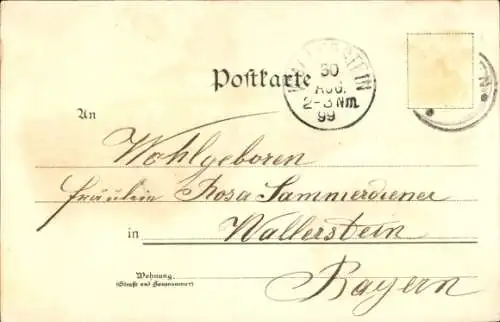 Postkarte
WALLERSTEIN
30
AUG.
2-3 Nm.
99
An
Wohlgeboren
Fräulein Rosa Sammerdiener
in Wallerstein
Bayern
Wohnung
(Straße und Hausnummer)